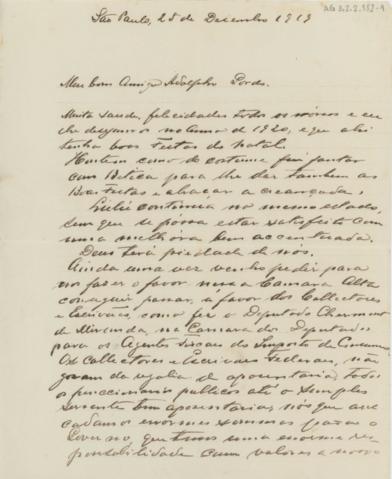 AG 3.2.2.152-1
São Paulo, 25 de Dezembro 1919
Meu bom Amigo Adolpho Gordo.
Muita saude, felicidades todos os nossos e eu
lhe desejamos no Anno de 1920, e que ahi
tenha boas festas do Natal.
Hontem como de costume fui jantar
com Betica para lhe dar tambem as
Boas festas, abraçar a creançada.
continúa no mesmo estado,
sem que se possa estar satisfeito com
uma melhóra bem accentuada.
Deus terá piedade de nós.
Ainda uma vez venho pedir para
nos fazer o favor na Camara Alta
conseguir a favor dos Collectores
e Escrivães, como fez o Deputado Clermont
de Miranda, na Camara dos Deputados
para os Agentes fiscaes do Imposto de Consumo.
Os Collectores e Escrivães Federaes, não
gosam da regalia de aposentadoria, todos
os funccionarios publicos até o simples
servente tem aposentadorias, nós que
enormes sommas para o
Governo, que temos uma enorme res-
ponsabilidade com valores a nosso